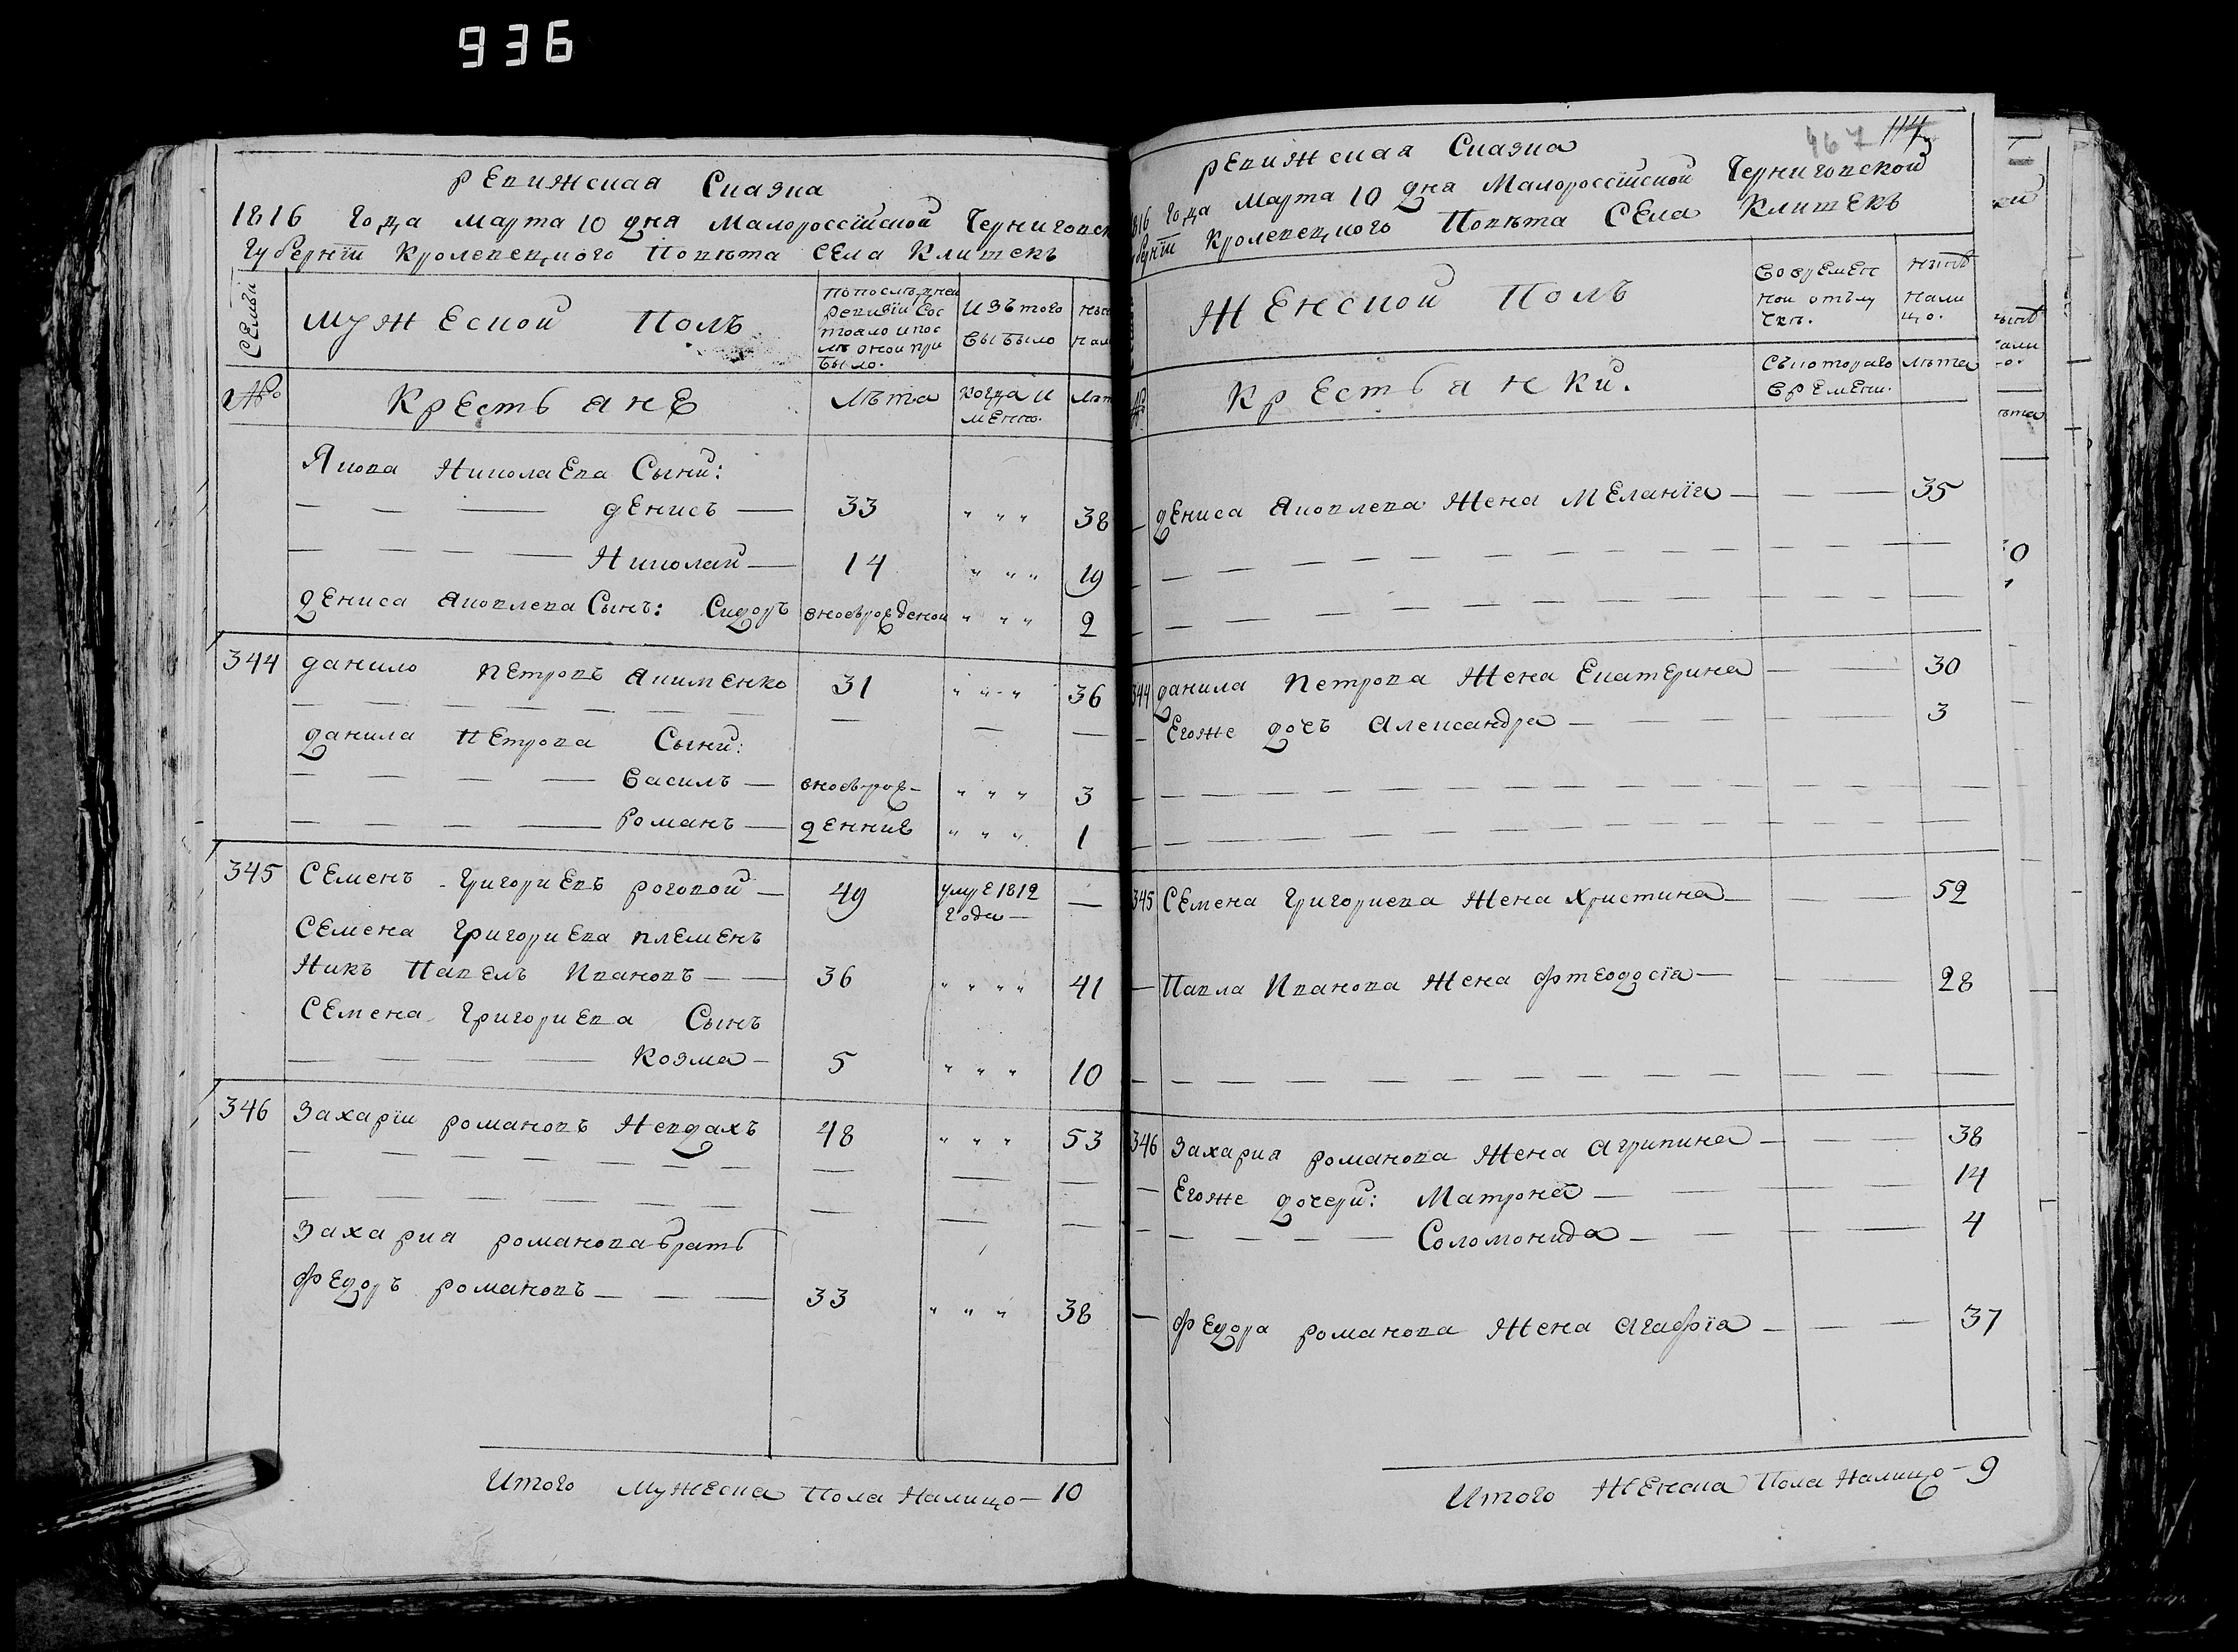 936
ревижская Сказка
1816 Года марта 10 дня Малороссїйской Черниговск
Губернїи Кролевецкого Повѣта Села Клишекъ
Семьи
Мужескои Полъ
По последней
Ревизїи сос
тояло и пос
лѣ оной при
было.
Изъ того
выбыло
№
Крестьяне
Лѣта
Когда и
менно.
Якова Николаева Сыни:
— — — Денисъ — 33 " " " 38
— — — — Николай — 14 " " " 19
Дениса Яковлева Сынъ: Сидоръ вновьрожденой " " " 2
344 Данило Петровъ Якименко 31 " " " 36
— — — — — — — — — —
Данила Петрова Сыни:
— — — — Василь — вновьрож- " " " 3
— — — — Романъ — денние " " " 1
345 Семенъ Григориевъ роговой — 49 умре 1812 —
года —
Семена Григориева племенъ
никъ Павелъ Ивановъ — — 36 " " " " 41
Семена Григориева Сынъ
— — — — Козма — 5 " " " 10
346 Захарїи романовъ Невдахъ 48 " " " 53
— — — — — — — — — —
— — — — — — — — — —
Захария романова братъ
Федоръ романовъ — — — 33 " " " 38
Итого Мужеска Пола Налицо — 10
467 114
ревижская Сказка
1816 Года Марта 10 Дня Малороссїйской Черниговской
Губернїи Кролевецкого Повѣта Села Клишекъ
Женской Полъ
Во времен
ной отлу
чкѣ.
Нынѣ
Нали
цо.
№
Крестьянки.
Съ котораго
времени.
Лѣта
— Дениса Яковлева Жена Меланїя — — — 35
— — — — — — — — — — —
— — — — — — — — — — —
344 Данила Петрова Жена Екатерина — — 30
— Егоже дочь Александра — — — 3
— — — — — — — — — — —
— — — — — — — — — — —
345 Семена Григориева Жена Христина — — — 52
— Павла Иванова Жена Фтеодосїа — — — 28
— — — — — — — — — — —
346 Захария романова Жена Агрипина — — — 38
— Егоже дочери: Матрона — — — 14
— — — — — Соломонида — — — 4
— Федора романова Жена Агафїа — — — 37
Итого Женска Пола Налицо — 9